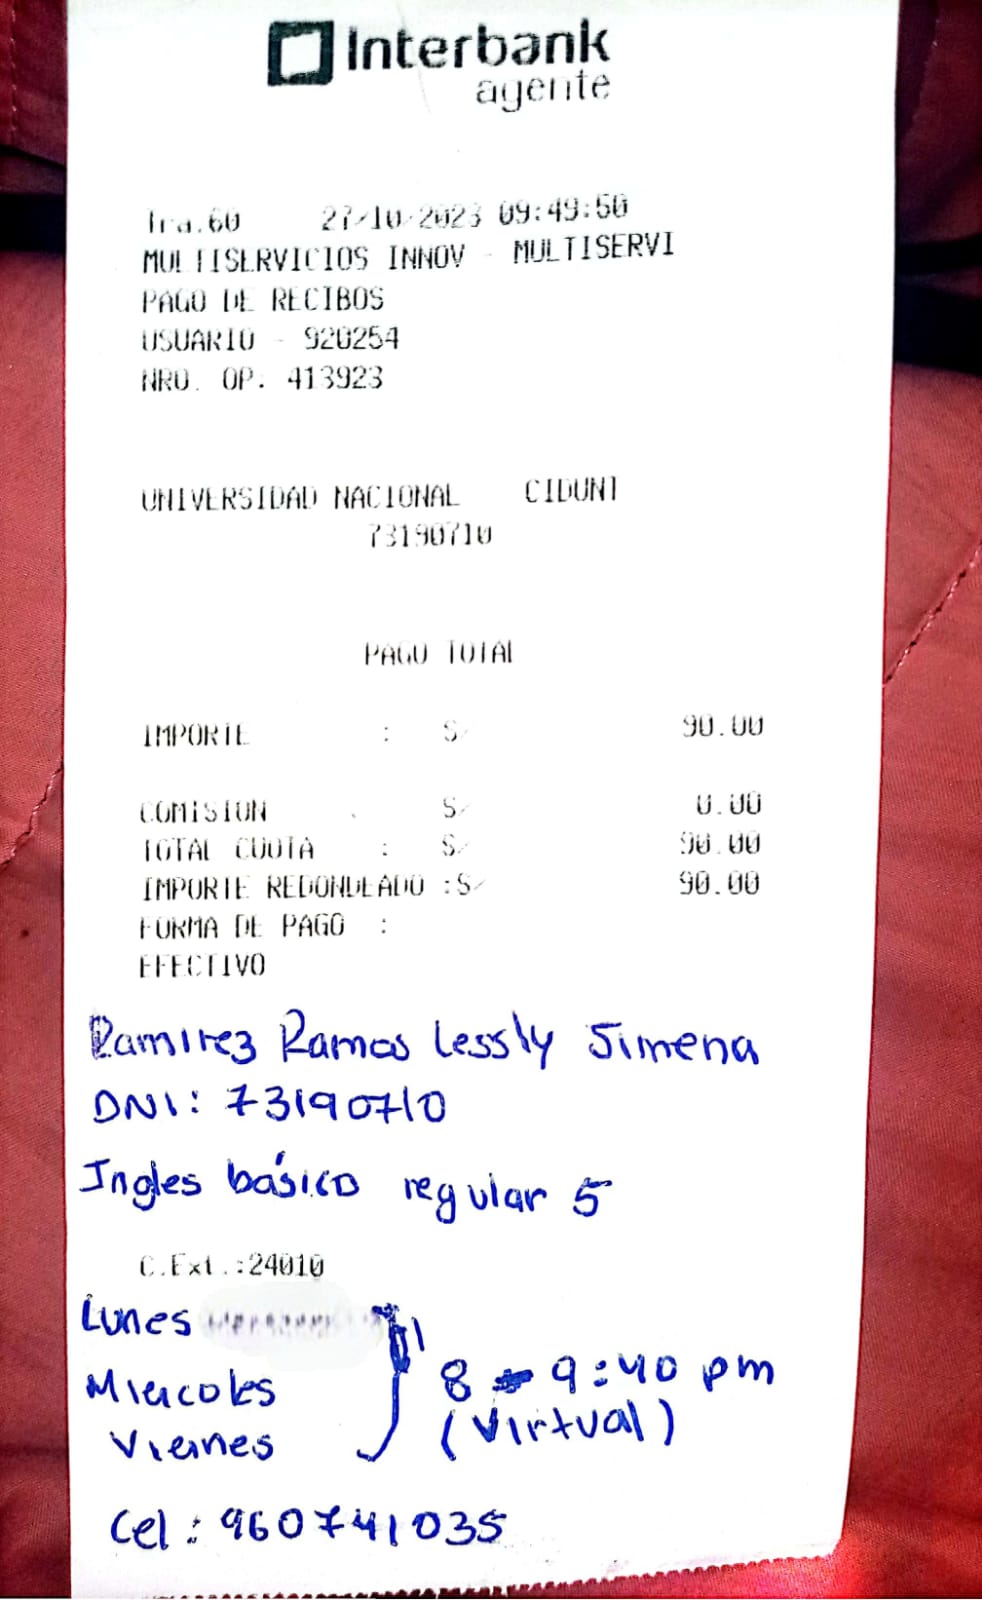 Interbank
agente
Tra.60 27/10/2023 09:49:50
MULTISERVICIOS INNOV - MULTISERVI
PAGO DE RECIBOS
USUARIO - 920254
NRO. OP. 413923
UNIVERSIDAD NACIONAL CIDUNT
73190710
PAGO TOTAL
IMPORTE : S/ 90.00
COMISION : S/ 0.00
TOTAL CUOTA : S/ 90.00
IMPORTE REDONDEADO :S/ 90.00
FORMA DE PAGO :
EFECTIVO
Ramirez Ramos Lessly Jimena
DNI: 73190710
Ingles básico regular 5
C.Ext.:24010
Lunes
Miercoles 8 - 9:40 pm
Viernes (Virtual)
Cel: 960741035